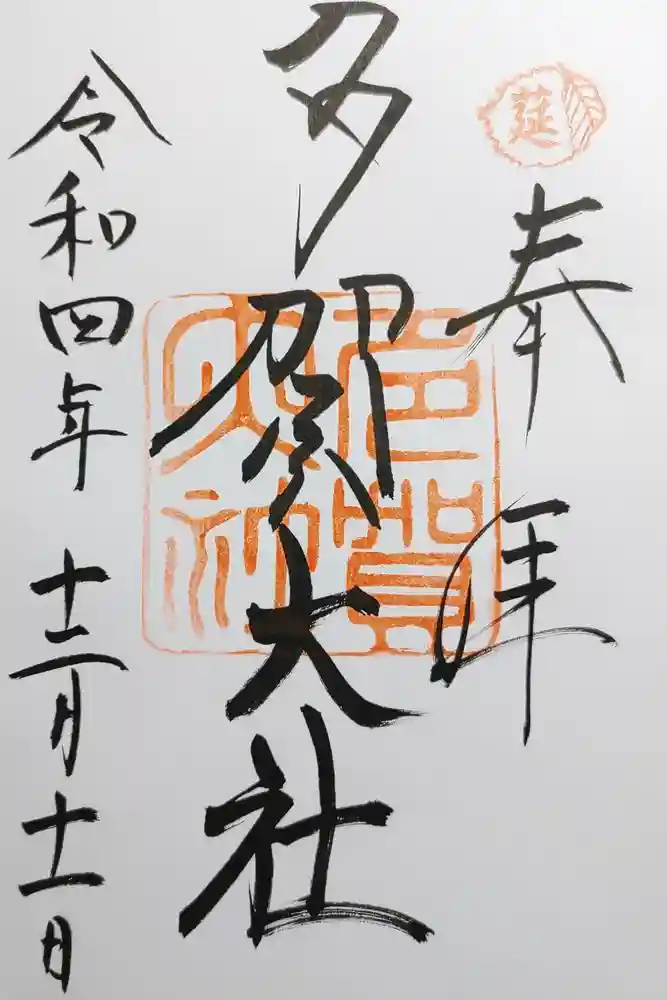 莚
奉拝
多賀大社
多賀大社
令和四年十二月十一日